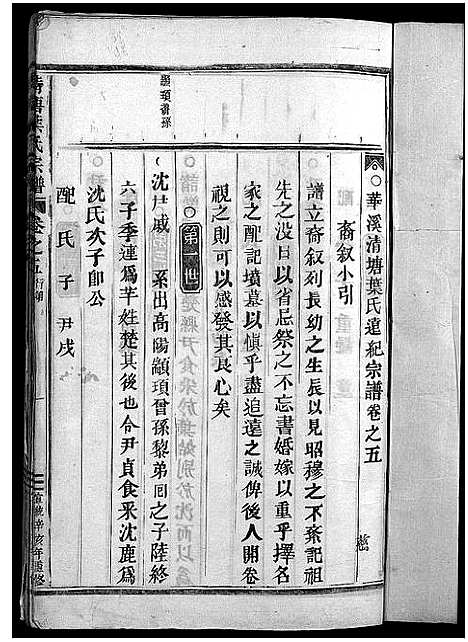 華溪清塘葉氏遠紀宗譜卷之五
裔叙小引
譜立裔叙列長幼之生辰以見昭穆之不紊記祖
先之没日以省忌祭之不忘書婚嫁以重乎擇名
家之配記墳墓以慎乎盡追遠之誠俾後人開卷
視之則可以感發其良心矣
第一世
顓頊曾孫
沈尹戚 系出高陽顓頊曾孫黎弟回之子陸終
六子季連為芊姓楚其後也今尹貞食釆沈鹿為
沈氏次子郎公
配氏子尹戌
清塘葉氏宗譜 卷之五 行第
宣統辛亥年重修